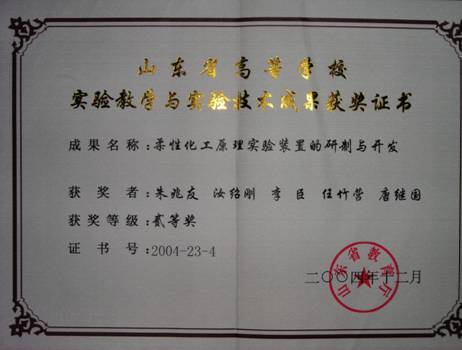 山东省高等学校
实验教学与实验技术成果获奖证书
成果名称:柔性化工原理实验装置的研制与开发
获奖者:朱兆友 汝绍刚 李臣 任竹营 唐继国
获奖等级:贰等奖
证书号:2004-23-4
山东省教育厅
二〇〇四年十二月